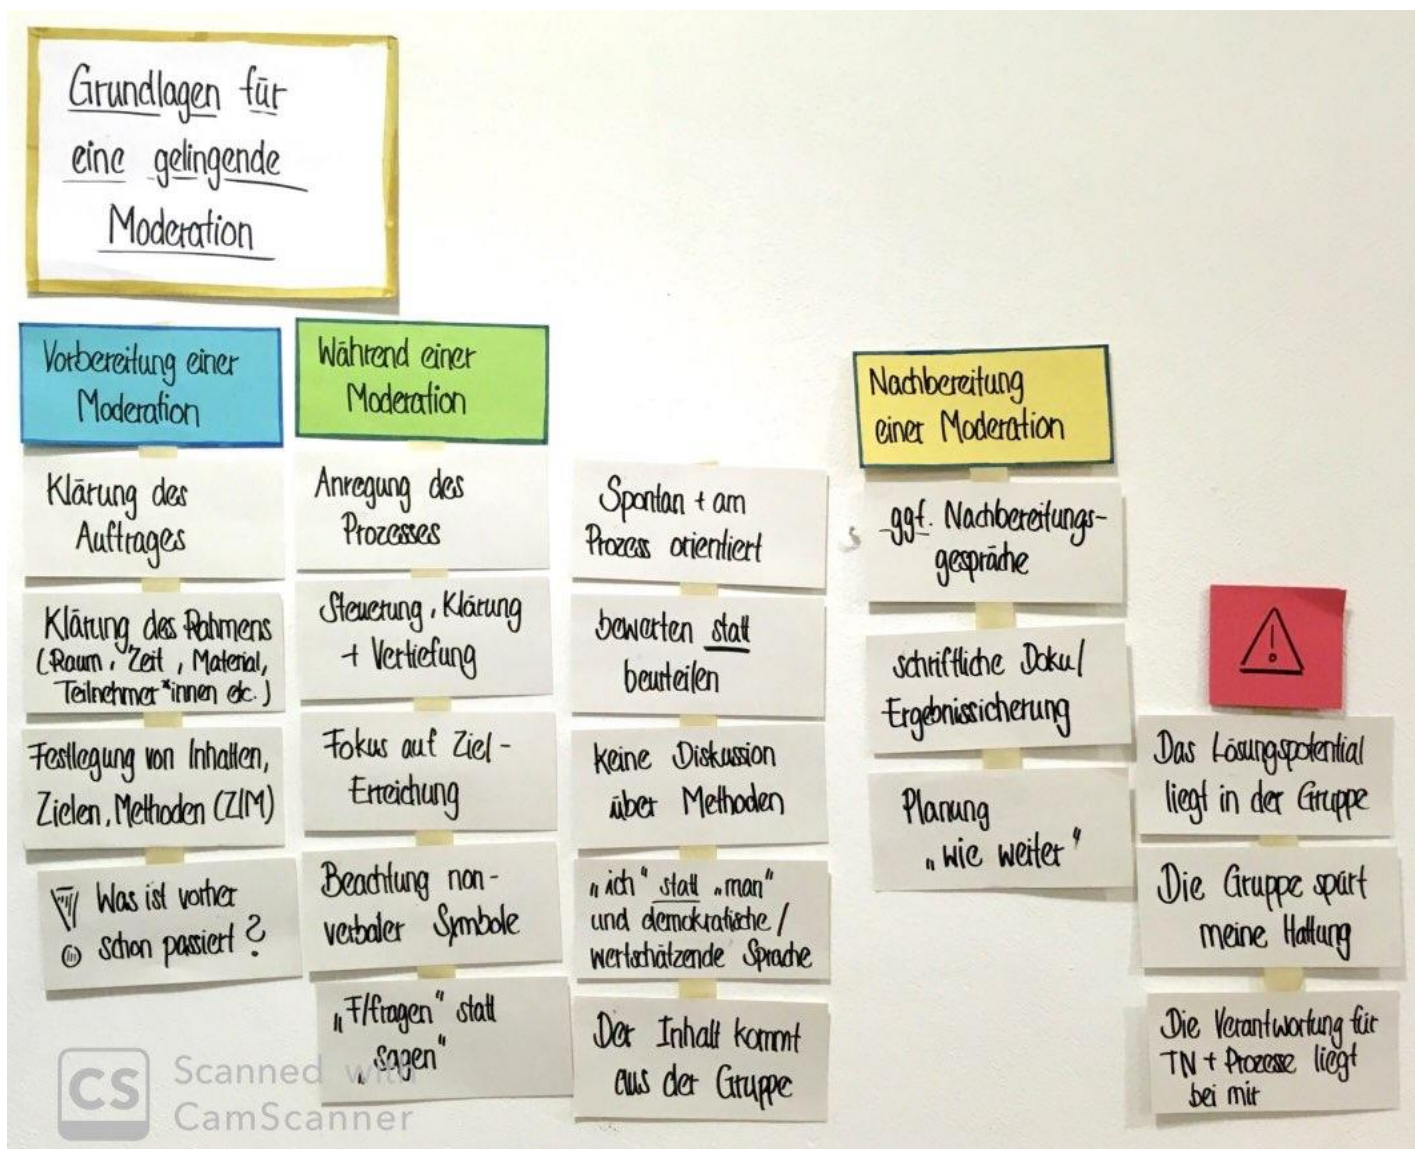 Grundlagen für
eine gelingende
Moderation
Vorbereitung einer
Moderation
Klärung des
Auftrages
Klärung des Rahmens
(Raum, Zeit, Material,
Teilnehmer*innen etc.)
Festlegung von Inhalten,
Zielen, Methoden (ZIM)
! Was ist vorher
schon passiert?
Während einer
Moderation
Anregung des
Prozesses
Steuerung, Klärung
+ Vertiefung
Fokus auf Ziel-
Erreichung
Beachtung non-
verbaler Symbole
„F/fragen“ statt
„sagen“
Spontan + am
Prozess orientiert
bewerten statt
beurteilen
keine Diskussion
über Methoden
„ich“ statt „man“
und demokratische/
wertschätzende Sprache
Der Inhalt kommt
aus der Gruppe
Nachbereitung
einer Moderation
ggf. Nachbereitungs-
gespräche
schriftliche Doku/
Ergebnissicherung
Planung
„wie weiter“
!
Das Lösungspotential
liegt in der Gruppe
Die Gruppe spürt
meine Haltung
Die Verantwortung für
TN + Prozesse liegt
bei mir
CS Scanned with
CamScanner